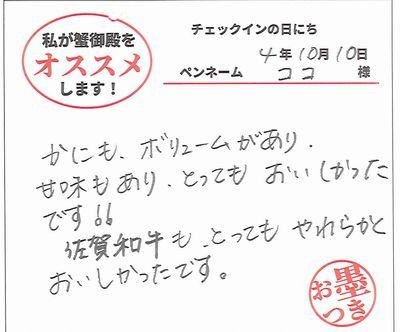 私が蟹御殿を
オススメ
します！
チェックインの日にち
4年10月10日
ペンネーム ココ 様
かにも、ボリュームがあり、
甘味もあり、とっても おいしかった
です!!
佐賀和牛も、とっても やわらかと
おいしかったです。
お墨つき